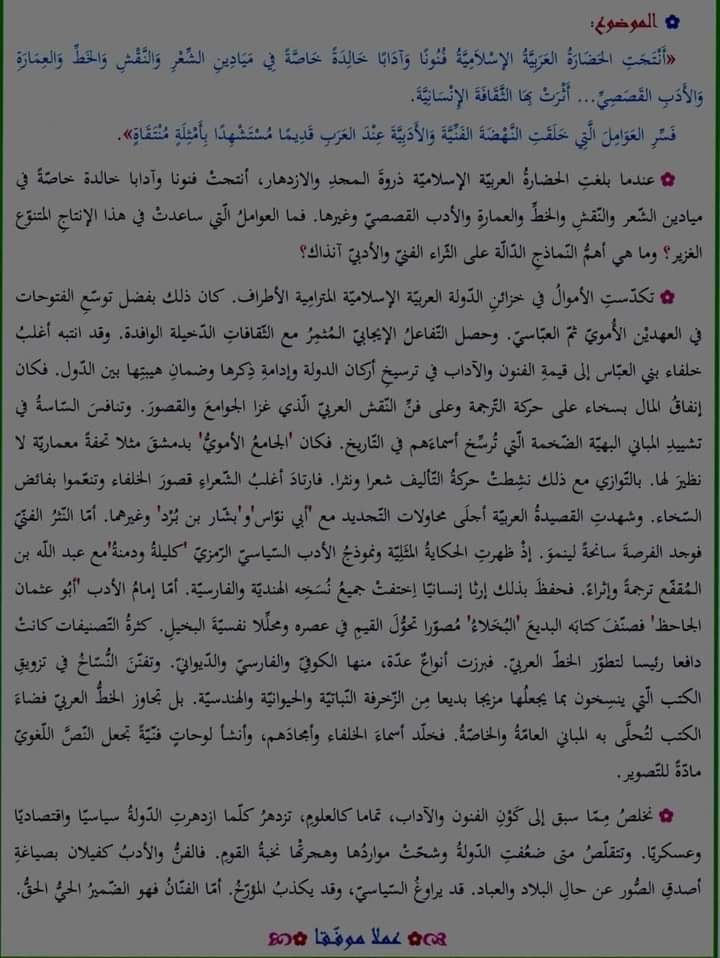 الموضوع:
«أَنْتَجَتِ الحَضَارَةُ العَرَبِيَّةُ الإِسْلاَمِيَّةُ فُنُونًا وَآدَابًا خَالِدَةً خَاصَّةً فِي مَيَادِينِ الشِّعْرِ وَالنَّقْشِ وَالخَطِّ وَالعِمَارَةِ
وَالأَدَبِ القَصَصِيِّ... أَثْرَتْ بِهَا الثَّقَافَةَ الإِنْسَانِيَّةَ.
فَسِّرِ العَوَامِلَ الَّتِي خَلَقَتِ النَّهْضَةَ الفَنِّيَّةَ وَالأَدَبِيَّةَ عِنْدَ العَرَبِ قَدِيمًا مُسْتَشْهِدًا بِأَمْثِلَةٍ مُنْتَقَاةٍ».
عندما بلغتِ الحضارةُ العربيّة الإسلاميّة ذروةَ المجدِ والازدهار، أنتجتْ فنونا وآدابا خالدة خاصّةً في
ميادين الشّعر والنّقشِ والخطِّ والعمارةِ والأدب القصصيّ وغيرها. فما العواملُ الّتي ساعدتْ في هذا الإنتاجِ المتنوّع
الغزير؟ وما هي أهمُّ النّماذجِ الدّالّة على الثّراء الفنيّ والأدبيّ آنذاك؟
تكدّستِ الأموالُ في خزائنِ الدّولة العربيّة الإسلاميّة المترامِية الأطراف. كان ذلك بفضل توسّعِ الفتوحات
في العهديْن الأُمويّ ثمّ العبّاسيّ. وحصل التّفاعلُ الإيجابيّ المُثمِرُ مع الثّقافاتِ الدّخيلة الوافدة. وقد انتبه أغلبُ
خلفاء بني العبّاس إلى قيمةِ الفنون والآداب في ترسيخِ أركان الدولة وإدامةِ ذِكرها وضمانِ هيبتِها بين الدّول. فكان
إنفاقُ المال بسخاء على حركة التّرجمة وعلى فنِّ النّقش العربيّ الّذي غزا الجوامعَ والقصورَ. وتنافسَ السّاسةُ في
تشييدِ المباني البهيّة الضّخمة الّتي تُرسِّخ أسماءَهم في التّاريخ. فكان 'الجامعُ الأمويُّ' بدمشقَ مثلا تحفةً معماريّة لا
نظيرَ لها. بالتّوازي مع ذلك نشِطتْ حركةُ التّأليف شعرا ونثرا. فارتادَ أغلبُ الشّعراءِ قصورَ الخلفاء وتنعّموا بفائض
السّخاء. وشهدتِ القصيدةُ العربيّة أجلَى محاولات التّجديد مع 'أبي نوّاس'و'بشّار بن بُرْد' وغيرهما. أمّا النّثرُ الفنّيّ
فوجد الفرصةَ سانحةً لينموَ. إذْ ظهرتِ الحكايةُ المثَلِيّة ونموذجُ الأدب السّياسيّ الرّمزيّ 'كليلةُ ودمنةُ'مع عبد الله بن
المُقفّع ترجمةً وإثراءً. فحفظَ بذلك إرثا إنسانيّا اِختفتْ جميعُ نُسَخِه الهنديّة والفارسيّة. أمّا إمامُ الأدب 'أبُو عثمان
الجاحظ' فصنّفَ كتابَه البديعَ 'البُخَلاءُ' مُصوّرا تحوُّلَ القيمِ في عصره ومحلِّلا نفسيّةَ البخيلِ. كثرةُ التّصنيفات كانتْ
دافعا رئيسا لتطوّر الخطّ العربيّ. فبرزت أنواعٌ عدّة، منها الكوفيّ والفارسيّ والدّيوانيّ. وتفنّنَ النُّسّاخُ في تزويقِ
الكتب الّتي ينسِخون بما يجعلُها مزيجا بديعا مِن الزّخرفة النّباتيّة والحيوانيّة والهندسيّة. بل تجاوز الخطُّ العربيّ فضاءَ
الكتب لتُحلَّى به المباني العامّةُ والخاصّةُ. فخلّد أسماءَ الخلفاء وأمجادَهم، وأنشأ لوحاتٍ فنّيّةً تجعل النّصَّ اللّغويّ
مادّةً للتّصوير.
نخلصُ مِمّا سبق إلى كَوْنِ الفنون والآداب، تماما كالعلومِ، تزدهرُ كلّما ازدهرتِ الدّولةُ سياسيّا واقتصاديّا
وعسكريّا. وتتقلّصُ متى ضعُفتِ الدّولةُ وشحّتْ مواردُها وهجرتْها نخبةُ القومِ. فالفنُّ والأدبُ كفيلان بصياغةِ
أصدقِ الصُّور عن حالِ البلاد والعباد. قد يراوغُ السّياسيّ، وقد يكذبُ المؤرّخُ. أمّا الفنّانُ فهو الضّميرُ الحيُّ الحقُّ.
عملا موفّقا